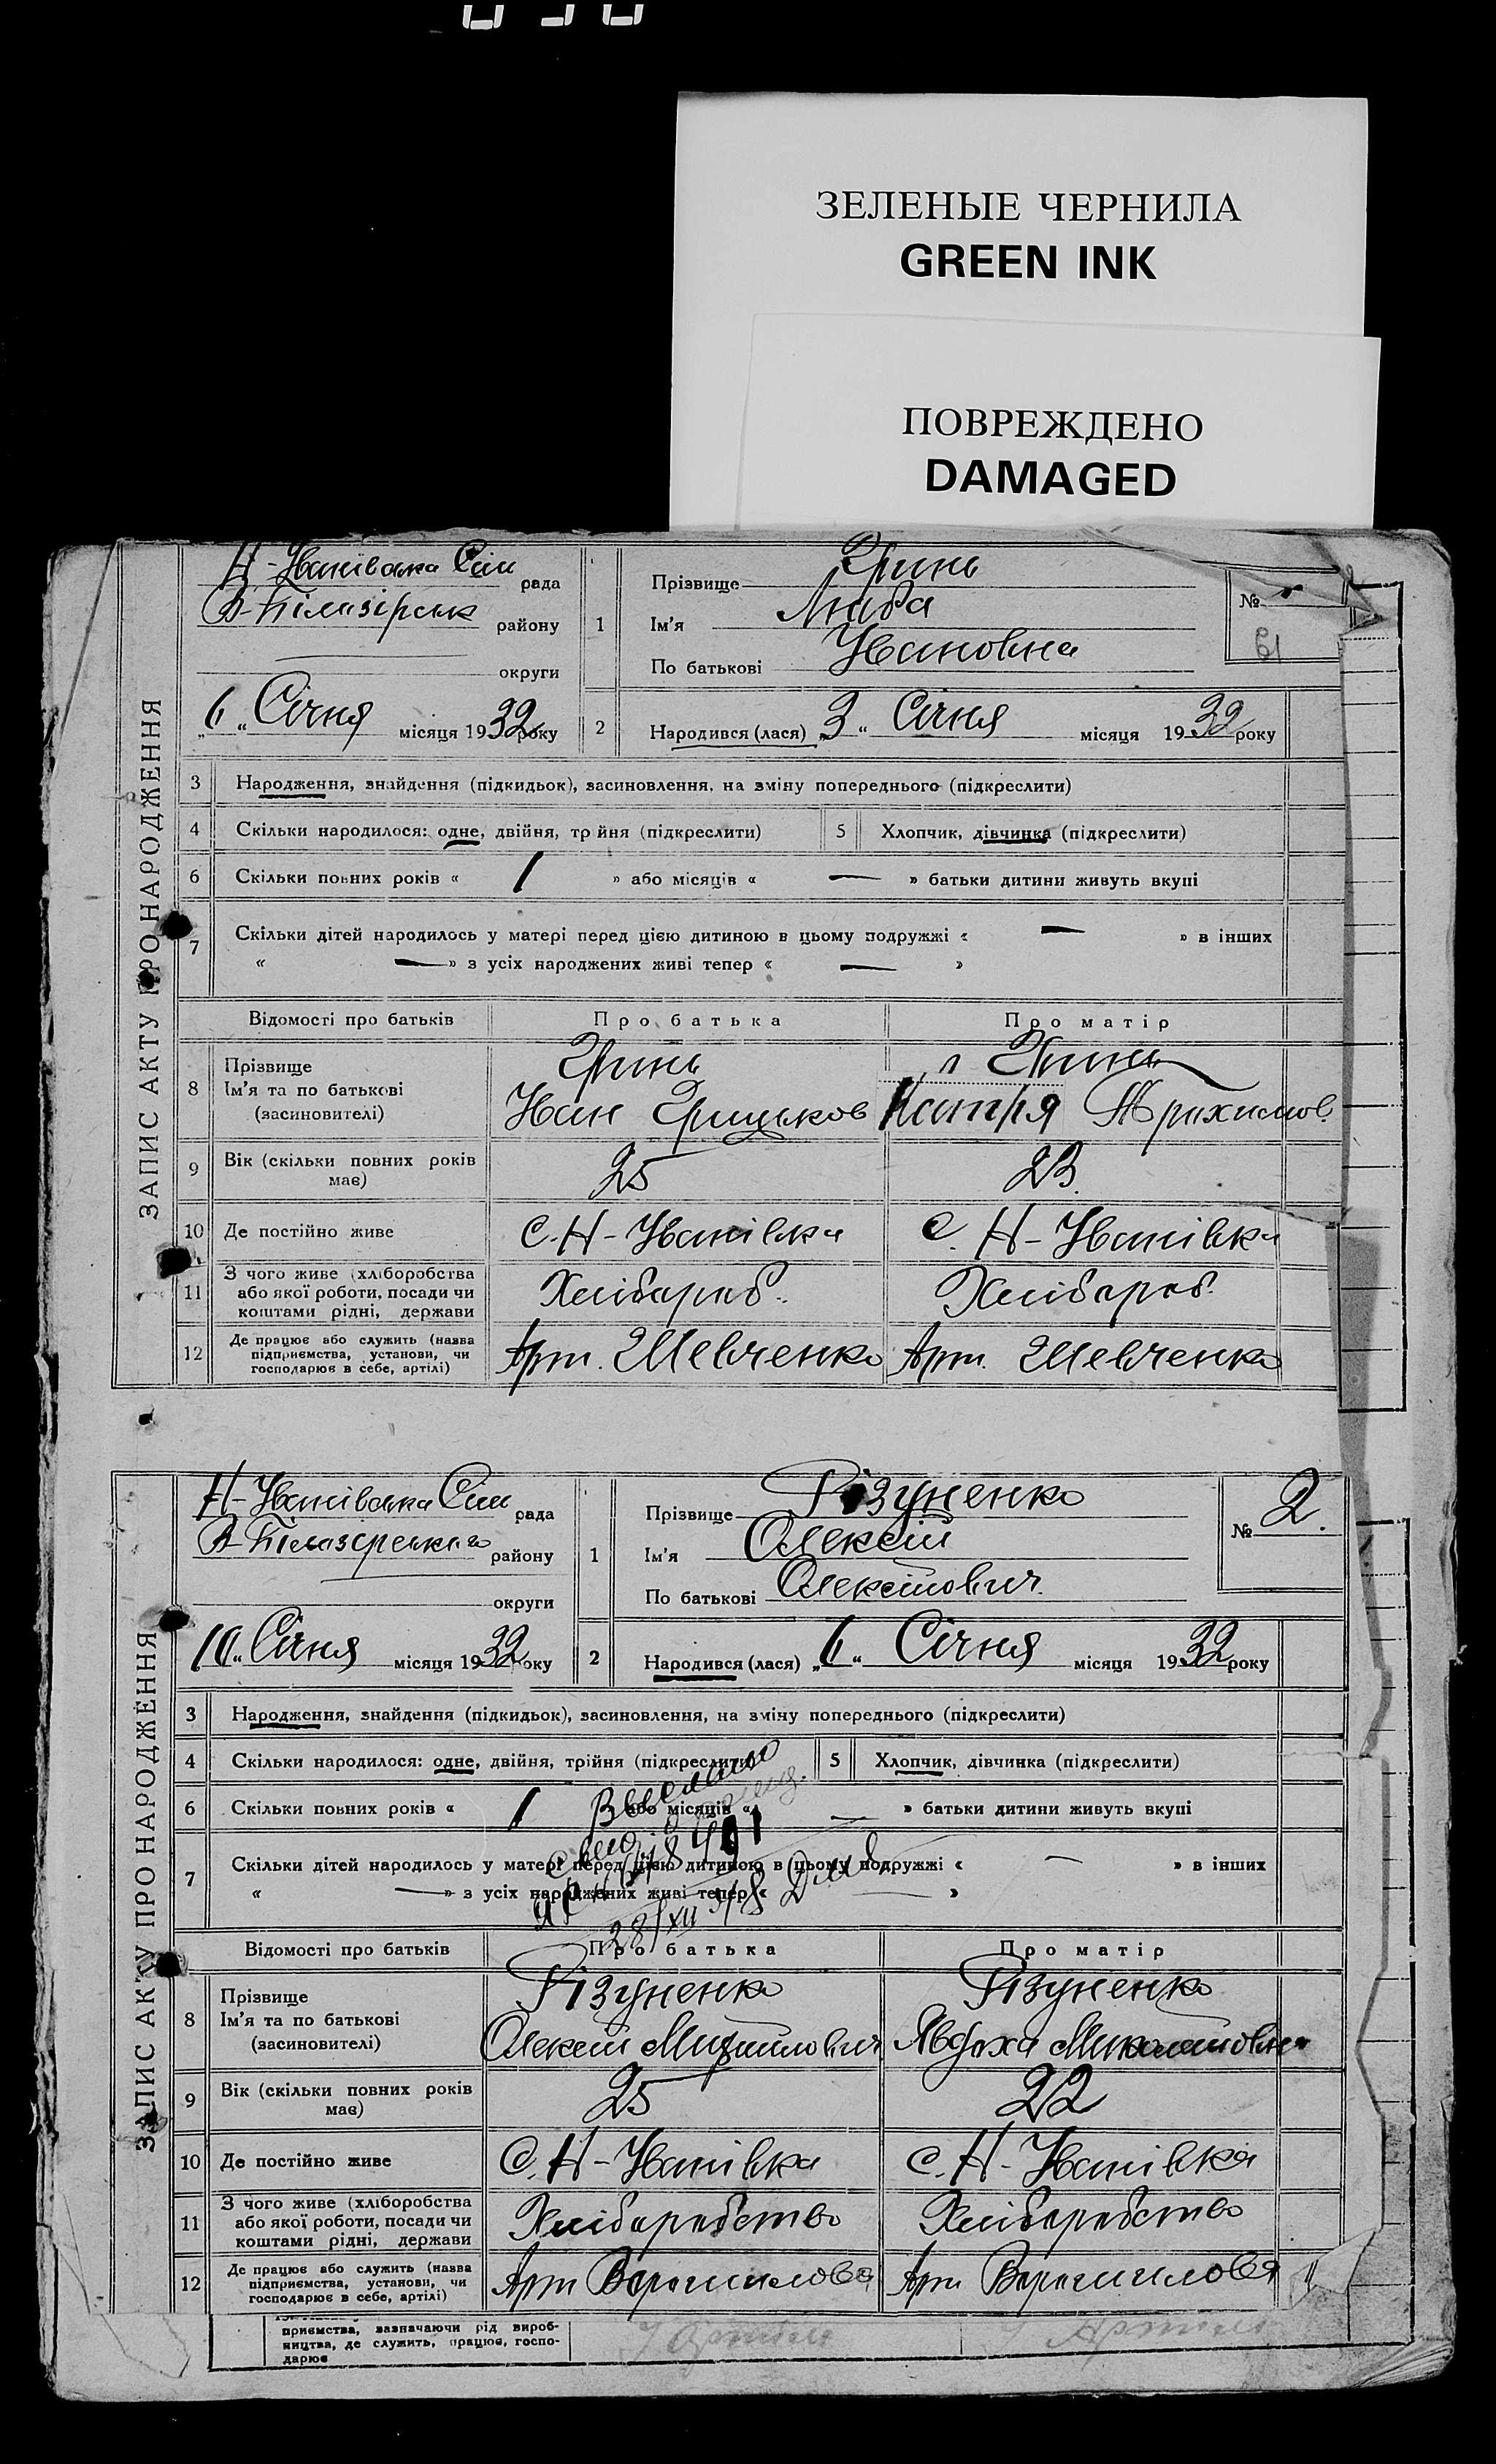 ЗЕЛЕНЫЕ ЧЕРНИЛА
GREEN INK
ПОВРЕЖДЕНО
DAMAGED
ЗАПИС АКТУ ПРО НАРОДЖЕННЯ
Н-Іванівська Сіл рада
В-Білазірськ району
округи
„6“ Січня місяця 1932 року
1
Прізвище Гринь
Ім'я Люба
По батькові Івановна
№
2
Народився (лася) „3“ Січня місяця 1932 року
3 Народження, знайдення (підкидьок), засиновлення, на зміну попереднього (підкреслити)
4 Скільки народилося: одне, двійня, трійня (підкреслити) 5 Хлопчик, дівчинка (підкреслити)
6 Скільки повних років « 1 » або місяців « — » батьки дитини живуть вкупі
7 Скільки дітей народилось у матері перед цією дитиною в цьому подружжі « — » в інших
« — » з усіх народжених живі тепер « — »
Відомості про батьків Про батька Про матір
8 Прізвище Гринь Гринь
Ім'я та по батькові Іван Грицьков Катря Трихимов.
(засиновителі)
9 Вік (скільки повних років має) 25 23
10 Де постійно живе С. Н-Іванівка С. Н-Іванівка
11 З чого живе (хліборобства Хлібороб. Хлібороб.
або якої роботи, посади чи
коштами рідні, держави
12 Де працює або служить (назва Арт. Шевченка Арт. Шевченка
підприємства, установи, чи
господарює в себе, артілі)
ЗАПИС АКТУ ПРО НАРОДЖЕННЯ
Н-Іванівська Сіл рада
В-Білазірського району
округи
„10“ Січня місяця 1932 року
1
Прізвище Різуненко
Ім'я Олексій
По батькові Олексійович
№ 2.
2
Народився (лася) „6“ Січня місяця 1932 року
3 Народження, знайдення (підкидьок), засиновлення, на зміну попереднього (підкреслити)
4 Скільки народилося: одне, двійня, трійня (підкреслити) 5 Хлопчик, дівчинка (підкреслити)
6 Скільки повних років « 1 » або місяців « — » батьки дитини живуть вкупі
7 Скільки дітей народилось у матері перед цією дитиною в цьому подружжі « — » в інших
« — » з усіх народжених живі тепер « — »
28/XII
Відомості про батьків Про батька Про матір
8 Прізвище Різуненко Різуненко
Ім'я та по батькові Олексій Михайлович Явдоха Миколаіовна
(засиновителі)
9 Вік (скільки повних років має) 25 22
10 Де постійно живе С. Н-Іванівка С. Н-Іванівка
11 З чого живе (хліборобства Хліборобство Хліборобство
або якої роботи, посади чи
коштами рідні, держави
12 Де працює або служить (назва Арт Ворошилова Арт Ворошилова
підприємства, установи, чи
господарює в себе, артілі)
приємства, зазначаючи рід вироб-
ництва, де служить, працює, госпо-
дарює